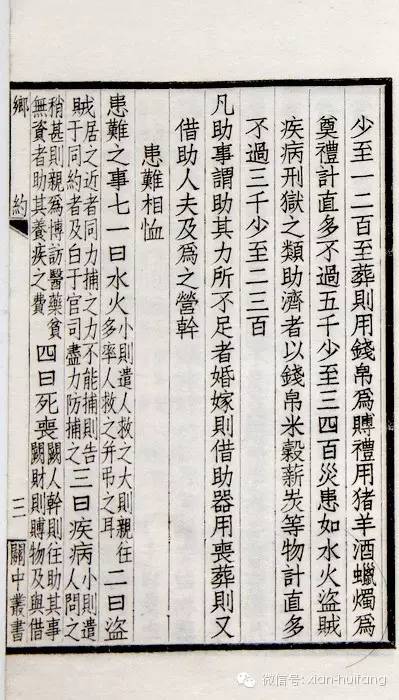 少至一二百至葬則用錢帛爲賻禮用猪羊酒蠟燭爲
奠禮計直多不過五千少至三四百災患如水火盜賊
疾病刑獄之類助濟者以錢帛米穀薪炭等物計直多
不過三千少至二三百
凡助事謂助其力所不足者婚嫁則借助器用喪葬則又
借助人夫及爲之營幹
患難相恤
患難之事七一曰水火小則遣人救之大則親往多率人救之并弔之耳二曰盜
賊居之近者同力捕之力不能捕則告于同約者及白于官司盡力防捕之三曰疾病小則遣人問之
稍甚則親爲博訪醫藥貧無資者助其養疾之費四曰死喪闕人幹則往助其事闕財則賻物及與借
鄉約 三 關中叢書
微信号: xian-huifang